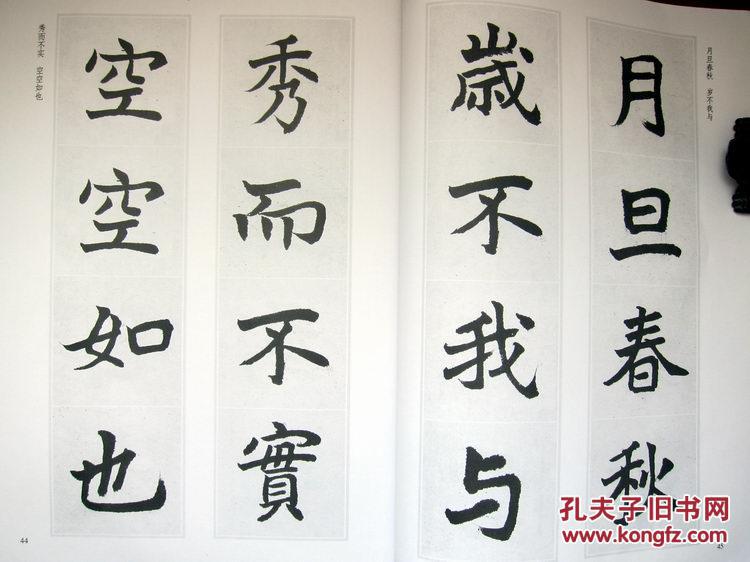 月旦春秋　岁不我与
月旦春秋
歲不我与
45
秀而不实　空空如也
秀而不實
空空如也
44
孔夫子旧书网
www.kongfz.com